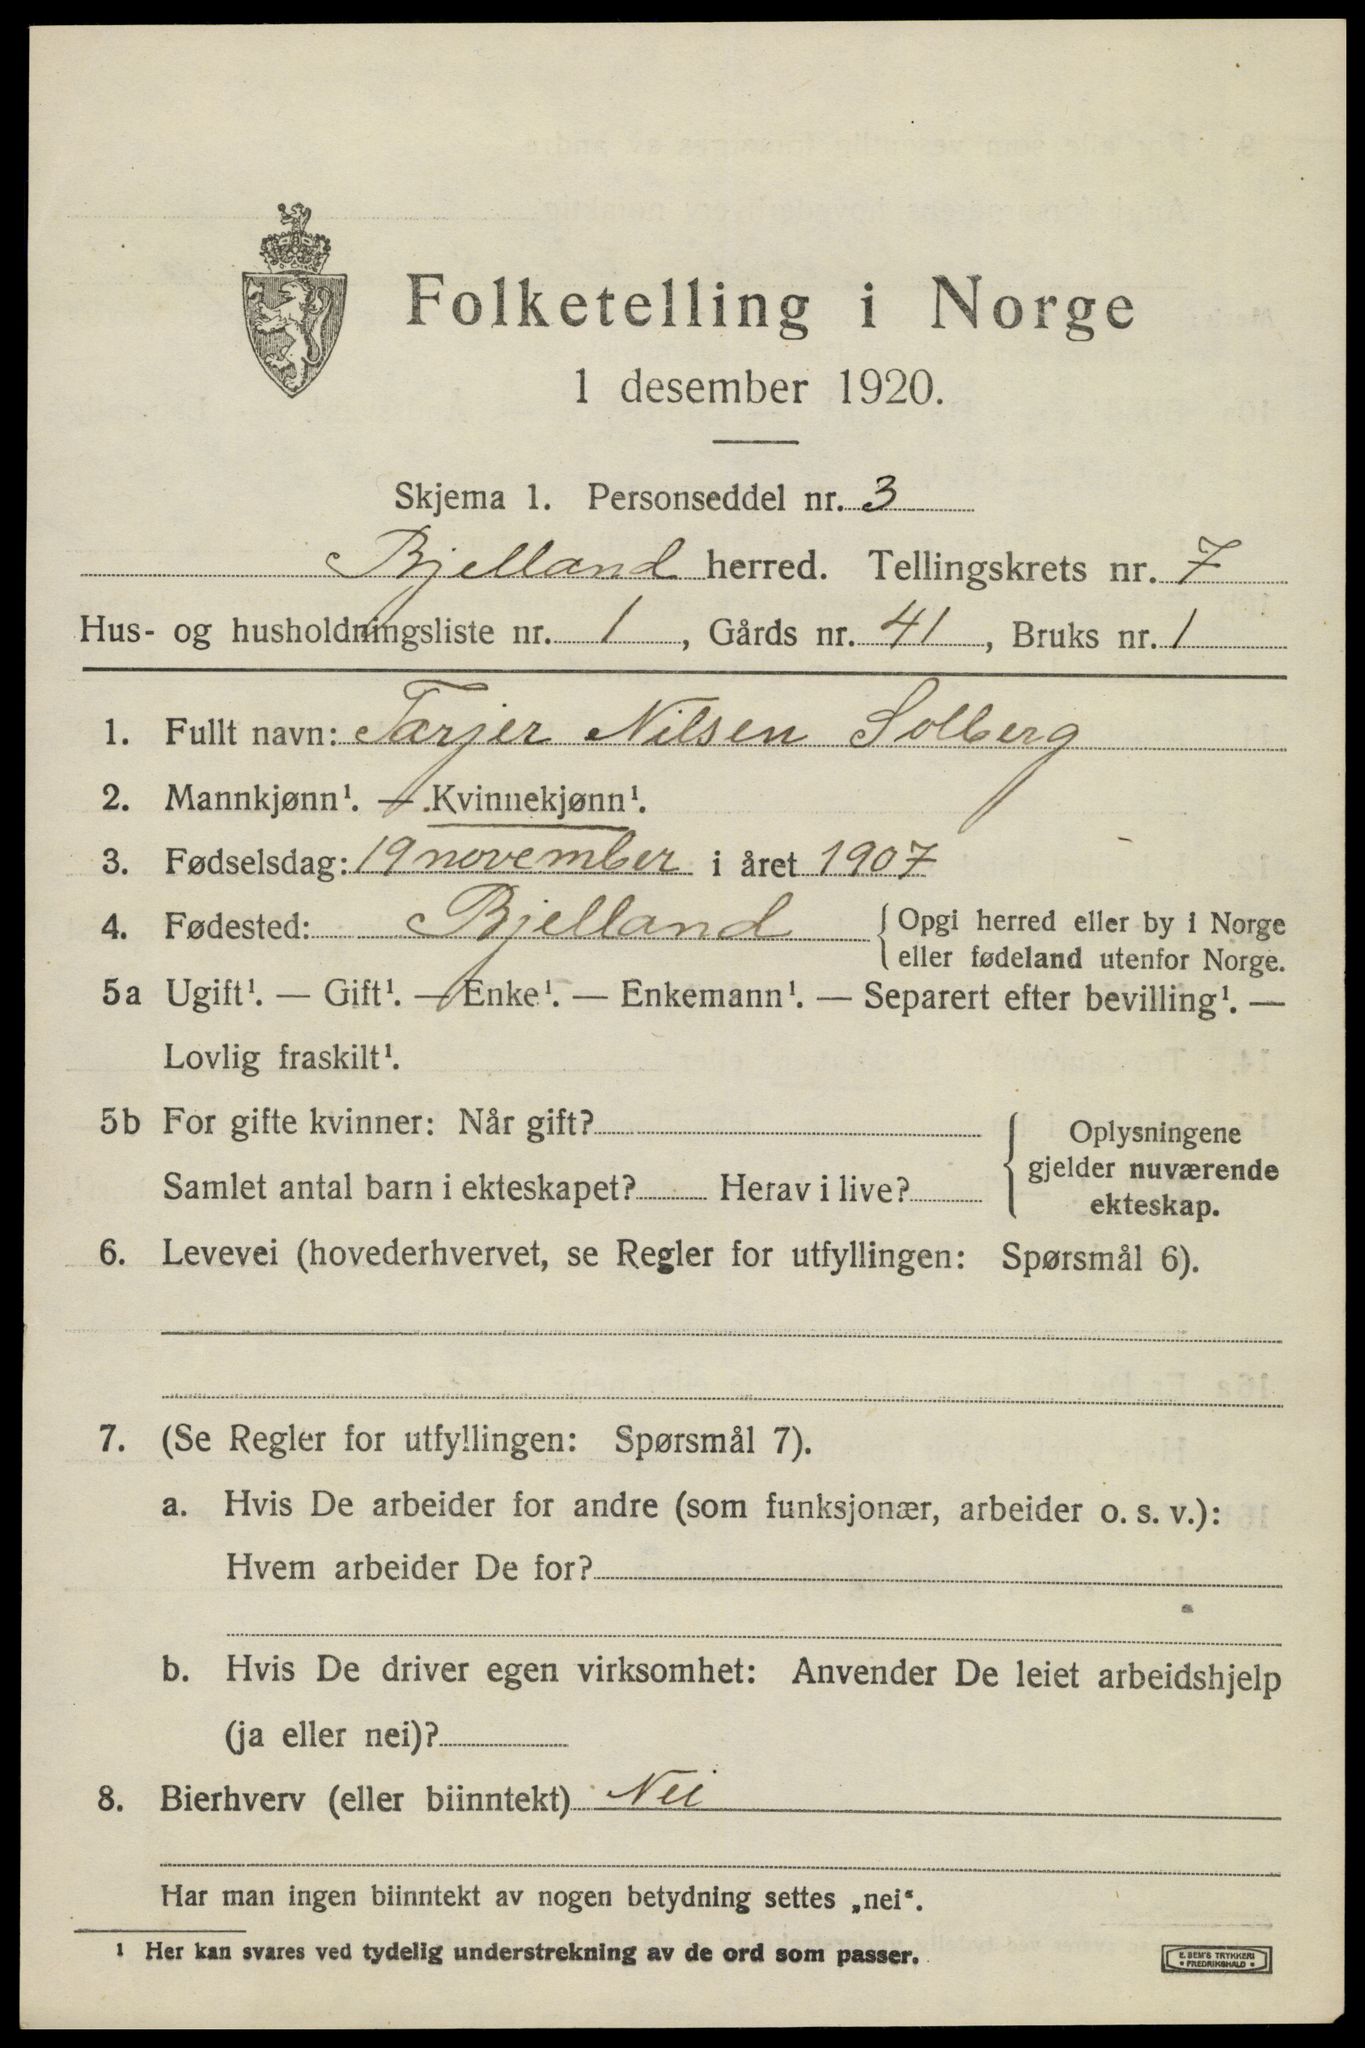 Folketelling i Norge
1 desember 1920.
Skjema 1. Personseddel nr. 3
Bjelland herred. Tellingskrets nr. 7
Hus- og husholdningsliste nr. 1, Gårds nr. 41, Bruks nr. 1
1. Fullt navn: Tarjer Nilsen Solberg
2. Mannkjønn¹. — Kvinnekjønn¹.
3. Fødselsdag: 19 november i året 1907
4. Fødested: Bjelland { Opgi herred eller by i Norge
eller fødeland utenfor Norge.
5a Ugift¹. — Gift¹. — Enke¹. — Enkemann¹. — Separert efter bevilling¹. —
Lovlig fraskilt¹.
5b For gifte kvinner: Når gift?
Samlet antal barn i ekteskapet? Herav i live?
Oplysningene
gjelder nuværende
ekteskap.
6. Levevei (hovederhvervet, se Regler for utfyllingen: Spørsmål 6).
7. (Se Regler for utfyllingen: Spørsmål 7).
a. Hvis De arbeider for andre (som funksjonær, arbeider o. s. v.):
Hvem arbeider De for?
b. Hvis De driver egen virksomhet: Anvender De leiet arbeidshjelp
(ja eller nei)?
8. Bierhverv (eller biinntekt) Nei
Har man ingen biinntekt av nogen betydning settes „nei“.
¹ Her kan svares ved tydelig understrekning av de ord som passer.
E. SEM'S TRYKKERI
• FREDRIKSHALD •